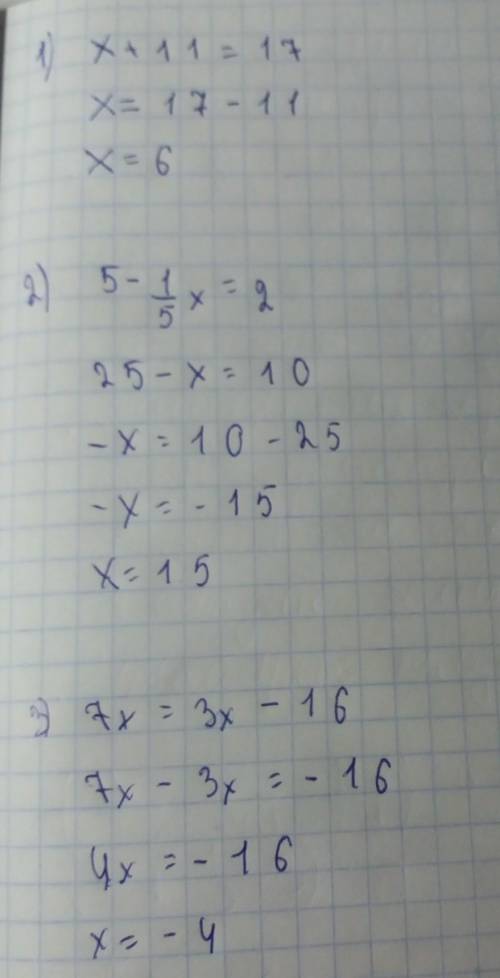 1) x + 11 = 17
x = 17 - 11
x = 6
2) 5 - 1/5 x = 2
25 - x = 10
-x = 10 - 25
-x = -15
x = 15
3) 7x = 3x - 16
7x - 3x = -16
4x = -16
x = -4